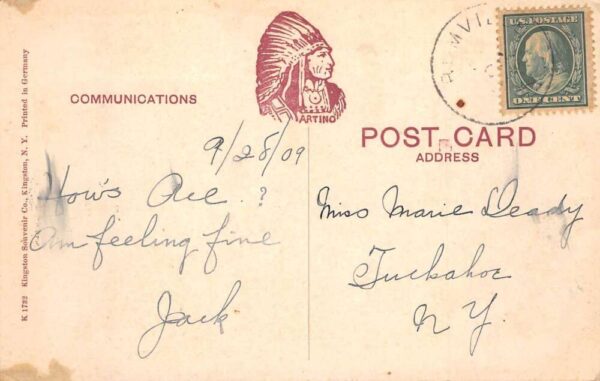 U.S. POSTAGE
ONE CENT
COMMUNICATIONS
ARTINO
POST CARD
ADDRESS
9/28/09
How's Ace ?
Am feeling fine
Jack
Miss Marie Deady
Tuckahoe
N.Y.
K 1732 Kingston Souvenir Co., Kingston, N. Y. Printed in Germany